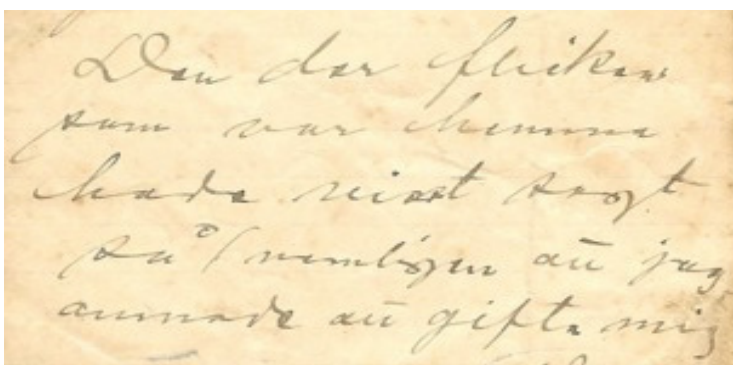 Den der flickan
som var hemma
hade visst sagt
så (nemligen att jag
ämnade att gifta mig